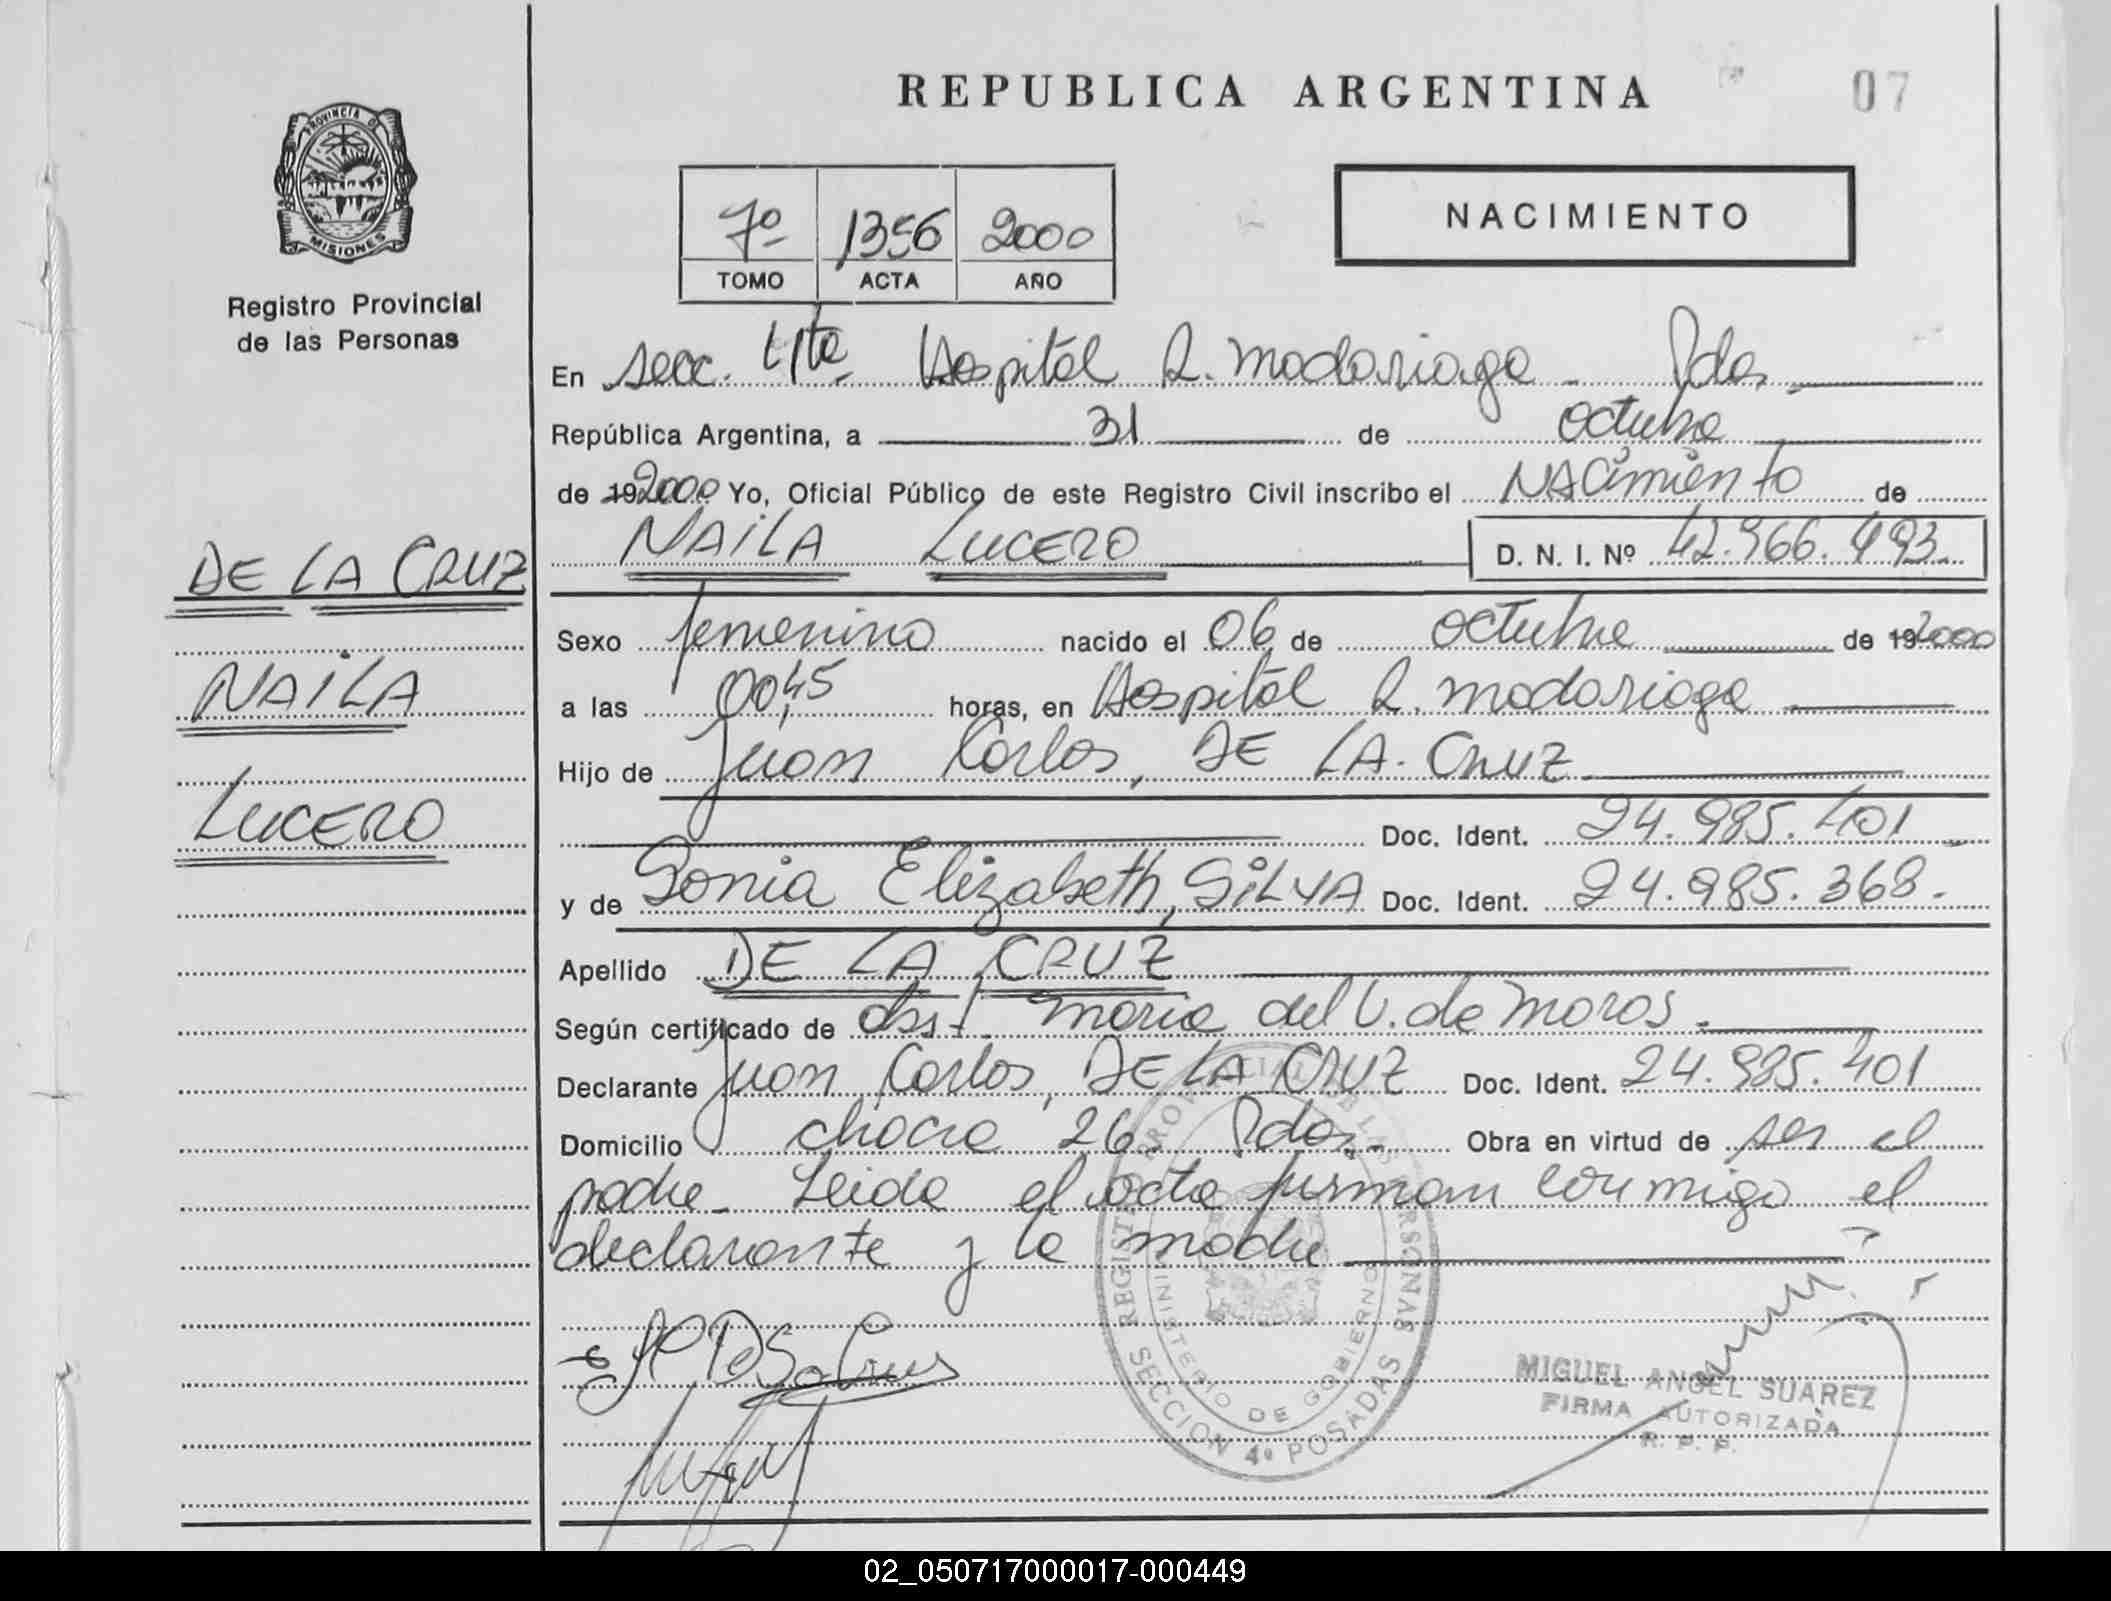 REPUBLICA ARGENTINA
07
PROVINCIA DE
MISIONES
Registro Provincial
de las Personas
7º 1356 2000
TOMO ACTA AÑO
NACIMIENTO
En secc. 4ta Hospital R. Madariaga - Pdas.
República Argentina, a 31 de octubre
de 192000 Yo, Oficial Público de este Registro Civil inscribo el NACimiento de
NAiLA LUCERO D. N. I. Nº 42.966.493.
DE LA CRUZ
NAiLA
LUCERO
Sexo femenino nacido el 06 de octubre de 192000
a las 00,45 horas, en Hospital R. Madariaga
Hijo de Juan Carlos, DE LA. CRUZ
Doc. Ident. 24.985.401
y de Sonia Elizabeth, SiLVA Doc. Ident. 24.985.368.
Apellido DE LA CRUZ
Según certificado de obst. Maria del V. de Moros.
Declarante Juan Carlos, DE LA CRUZ Doc. Ident. 24.985.401
Domicilio chacra 26 Pdas. Obra en virtud de ser el
padre_ Leida el acta firman conmigo el
declarante y la madre
REGISTRO PROVINCIAL DE LAS PERSONAS
MINISTERIO DE GOBIERNO
SECCION 4º POSADAS
MIGUEL ANGEL SUAREZ
FIRMA AUTORIZADA
R. P. P.
02_050717000017-000449